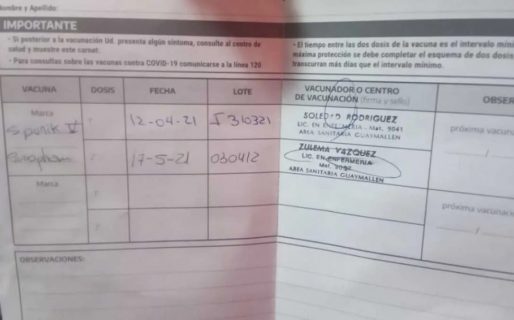 Nombre y Apellido:
IMPORTANTE
- Si posterior a la vacunación Ud. presenta algún síntoma, consulte al centro de
salud y muestre este carnet.
- Para consultas sobre las vacunas contra COVID-19 comunicarse a la línea 120
• El tiempo entre las dos dosis de la vacuna es el intervalo míni
máxima protección se debe completar el esquema de dos dosis
transcurran más días que el intervalo mínimo.
VACUNA DOSIS FECHA LOTE VACUNADOR O CENTRO
DE VACUNACIÓN (firma y sello) OBSER
Marca
Sputnik V 12-04-21 I 310321
SOLEDAD RODRIGUEZ
LIC. EN ENFERMERIA - Mat. 9041
AREA SANITARIA GUAYMALLEN
próxima vacunació
17-5-21 030412
ZULEMA VAZQUEZ
LIC. EN ENFERMERIA
AREA SANITARIA GUAYMALLEN
Marca
próxima vacunació
OBSERVACIONES: